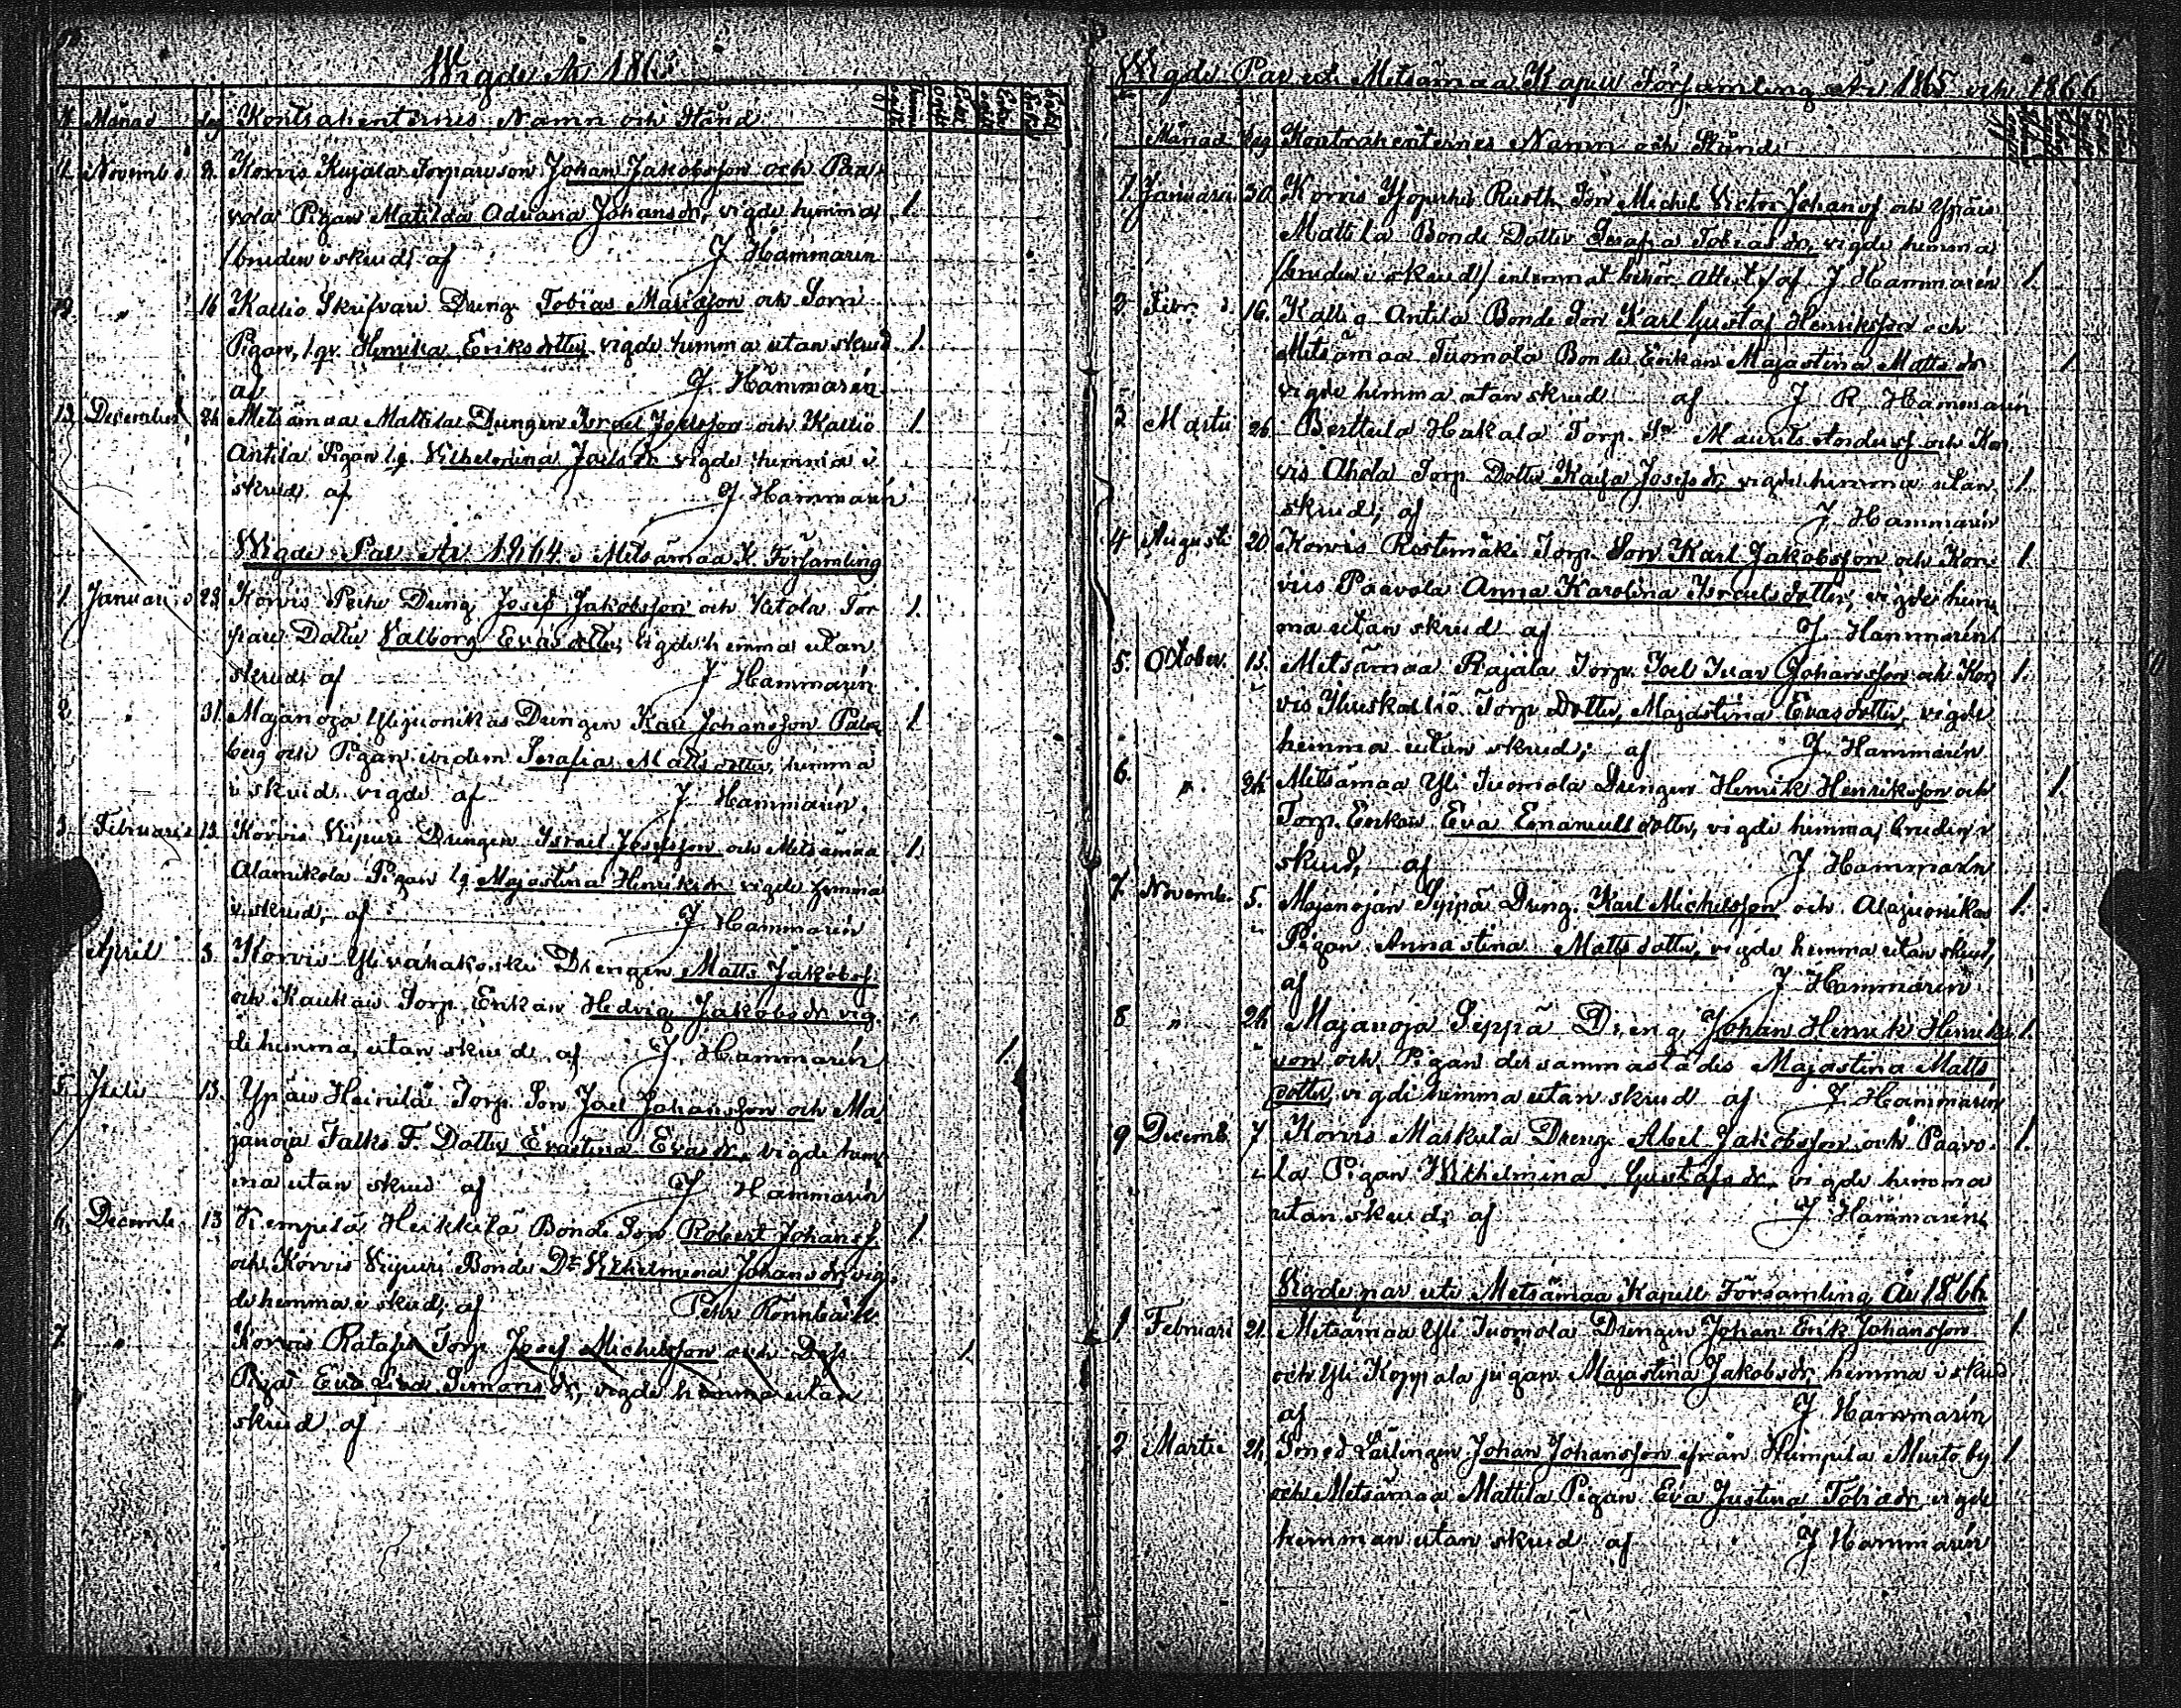 Wigde År 1863
N Månad dag Kontrahenternes Namn och Stånd
11. Novemb. 8. Korvis Kujala Torpareson Johan Jakobsson och Paa-
vola Pigan Matilda Adriana Johansdr, vigde hemma 1.
/bruden i skrud/ af J Hammarén
12. " 16 Kallio Skrifvare Dreng Tobias Mariasson och Sorri
Pigan, lgr. Henrika Eriksdotter vigde hemma utan skrud 1.
af J. Hammarén
13. December 26 Metsämaa Mattila Drengen Israel Joelsson och Kallio 1.
Antila Pigan lg. Vilhelmina Joelsdr vigde hemma i
skrud af J. Hammarén
Wigde Par År 1864 i Metsämaa K. Församling
1. Januari 23 Korvis Dreng Josef Jakobsson och Tor- 1.
pare Dotter Valborg Evasdotter, vigde hemma utan
skrud; af J Hammarén
2. " 31. Majanoja Drengen Karl Johansson
berg och Pigan Serafia Mattsdotter, hemma
i skrud vigde af J Hammarén.
3. Februari 13. Korvis Vipuri Drengen Israel Josefsson och Metsämaa 1.
Alamikola Pigan lg Majastina Henriksdr vigde hemma
i skrud; af J. Hammarén
April 3. Korvis Ylivähäkoski Drengen Matts Jakobss.
och Kaukan Torp. Enkan Hedvig Jakobsdr vig-
de hemma, utan skrud af J. Hammarén 1.
5. 13. Ypäis Heinilä Torp. Son Joel Johansson och Ma-
janoja Dotter Evastina Evasdr, vigde hem-
ma utan skrud af J Hammarén
6. Decemb. 13 Heikkilä Bonde Son Robert Johanss. 1.
och Korvis Vipuri Bonde Dr Vilhelmina Johansdr, vig-
de hemma i skrud; af Petr Rönnbäck
7. " Korvis Torp. Josef Michelsson och Dess 1.
Piga Eva Lisa Simonsdr, vigde hemma utan
skrud af
Wigde Par uti Metsämaa Kapell Församling År 1865 och 1866
Månad dag Kontrahenternes Namn och Stånd
1. Januari 30. Korvis Rusth. Son Michel Victor Johanss och Ypäis
Mattila Bonde Dotter Serafia Tobiasdr, vigde hemma
/bruden i skrud/ inlemnat behör. Attest/ af J. Hammarén 1.
2. Febr. 16. Kallio Antila Bonde Son Karl Gustaf Henriksson och
Metsämaa Tuomola Bonde Enkan Majastina Mattsdr 1
vigde hemma utan skrud af J R Hammarén
3 Martii 26 Berttula Hakala Torp. Sn Maurits och Kor-
vis Ahola Torp Dotter Kaisa Josefsdr, vigde hemma utan 1.
skrud; af J Hammarén
4 Augusti 20 Korvis Rostemäki Torp. Son Karl Jakobsson och Kor- 1.
vis Paavola Anna Karolina Israelsdotter, vigde hem-
ma utan skrud af J. Hammarén
5. October. 15. Metsämaa Rajala Torp. Joel Ivar Johansson och Kor- 1.
vis Torp Dotter, Majastina Evasdotter, vigde
hemma utan skrud; af J. Hammarén
6. " 24 Metsämaa Yli Tuomola Drengen Henrik Henriksson och 1.
Torp. Enkan Eva Emanuelsdotter, vigde hemma, bruden i
skrud, af J Hammarén
7. Novemb. 5. Majanojan Seppä Dreng. Karl Michelsson och Alajuonikas 1.
Pigan Annastina Mattsdotter, vigde hemma utan skrud,
af J Hammarén
8 " 24 Majanoja Seppä Dreng Johan Henrik Henriks- 1.
son och Pigan dersammastädes Majastina Matts-
dotter, vigde hemma utan skrud af J. Hammarén
9 Decemb. 7 Korvis Maskula Dreng Abel Jakobsson och Paavo- 1.
la Pigan Wilhelmina Gustafsdr, vigde hemma
utan skrud; af J Hammarén
Wigde par uti Metsämaa Kapell Församling År 1866
1 Februari 21. Metsämaa Yli Tuomola Drengen Johan Erik Johansson 1
och Yli Koppala pigan Majastina Jakobsdr, hemma i skrud
af J Hammarén
2 Martii 24. Smed Lärlingen Johan Johansson från Humpila Murto by 1
och Metsämaa Mattila Pigan Eva Justina Tobiasdr, vigde
hemman utan skrud af J Hammarén